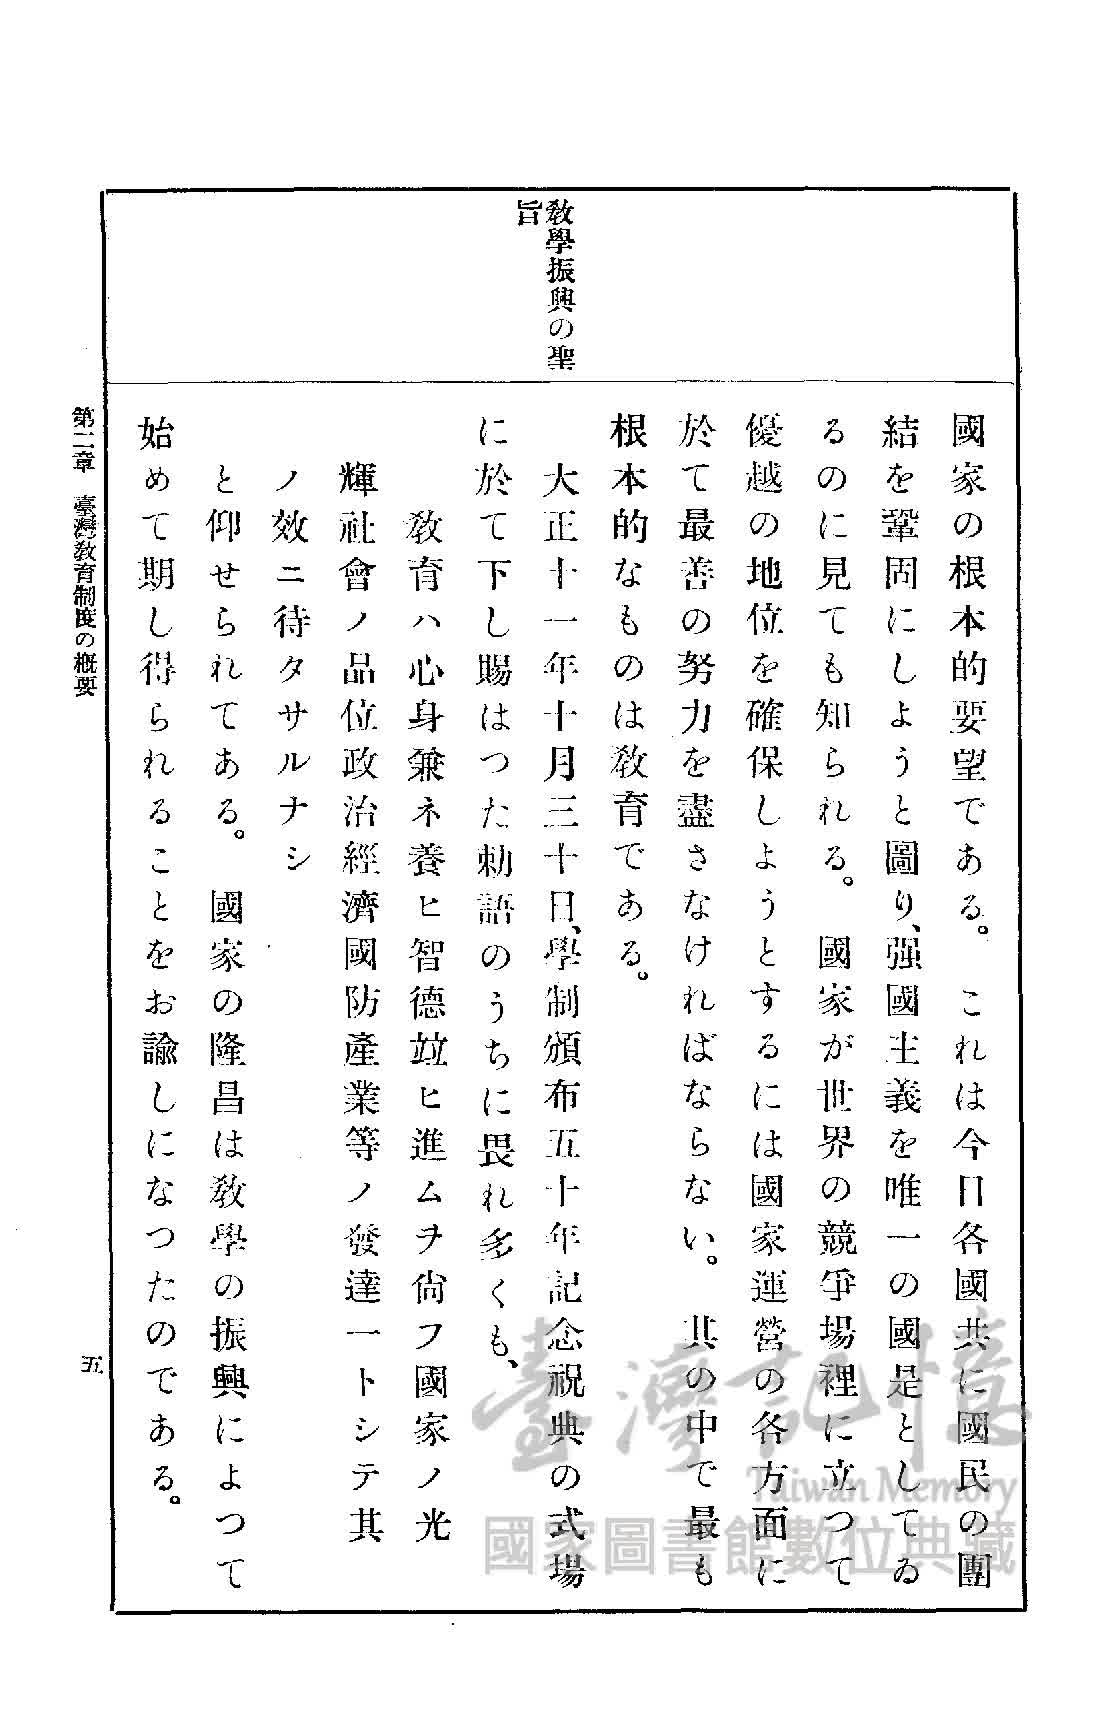 教學振興の聖
旨
國家の根本的要望である。これは今日各國共に國民の團
結を鞏固にしようと圖り、强國主義を唯一の國是としてゐ
るのに見ても知られる。國家が世界の競爭場裡に立つて
優越の地位を確保しようとするには國家運營の各方面に
於て最善の努力を盡さなければならない。其の中で最も
根本的なものは教育である。
大正十一年十月三十日、學制頒布五十年記念祝典の式場
に於て下し賜はつた勅語のうちに畏れ多くも、
教育ハ心身兼ネ養ヒ智德竝ヒ進ムヲ尙フ國家ノ光
輝社會ノ品位政治經濟國防產業等ノ發達一トシテ其
ノ效ニ待タサルナシ
と仰せられてある。國家の隆昌は教學の振興によつて
始めて期し得られることをお諭しになつたのである。
第二章 臺灣教育制度の概要
五
臺灣記憶
Taiwan Memory
國家圖書館數位典藏